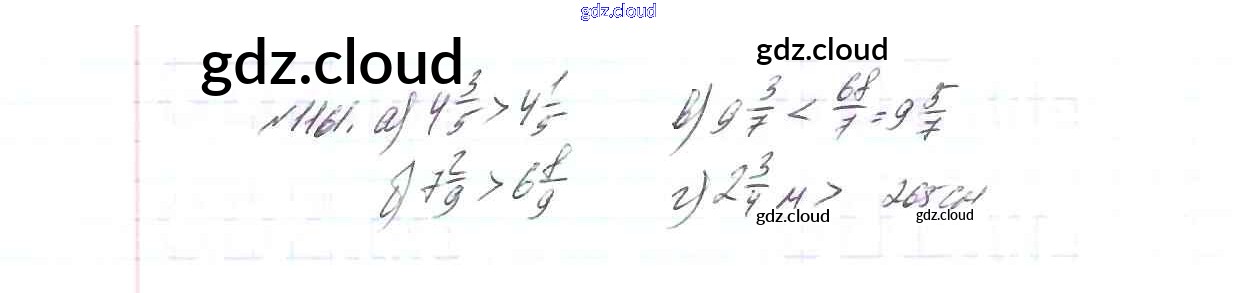 gdz.cloud
gdz.cloud gdz.cloud
№1161. а) 4 3/5 > 4 1/5 в) 9 3/7 < 68/7 = 9 5/7
б) 7 2/9 > 6 8/9 г) 2 3/4 м > 265 см
gdz.cloud gdz.cloud